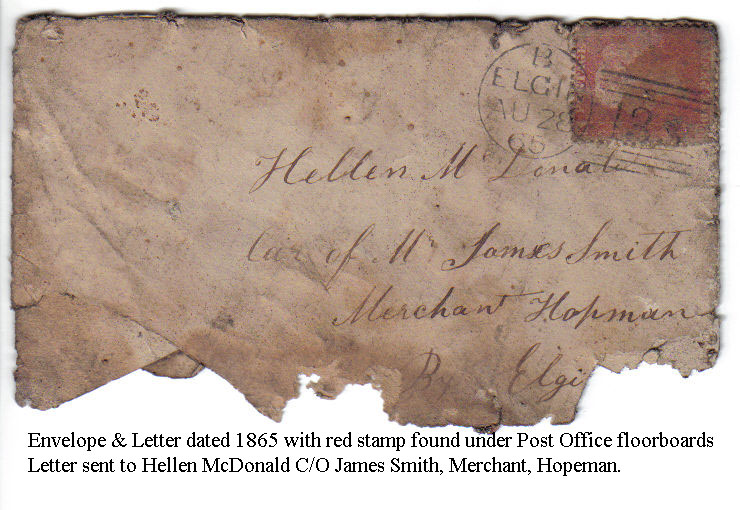 B
ELGIN
AU 28
65
Hellen Mc Donald
Car of Mr James Smith
Merchant Hopman
By Elgi
Envelope & Letter dated 1865 with red stamp found under Post Office floorboards
Letter sent to Hellen McDonald C/O James Smith, Merchant, Hopeman.